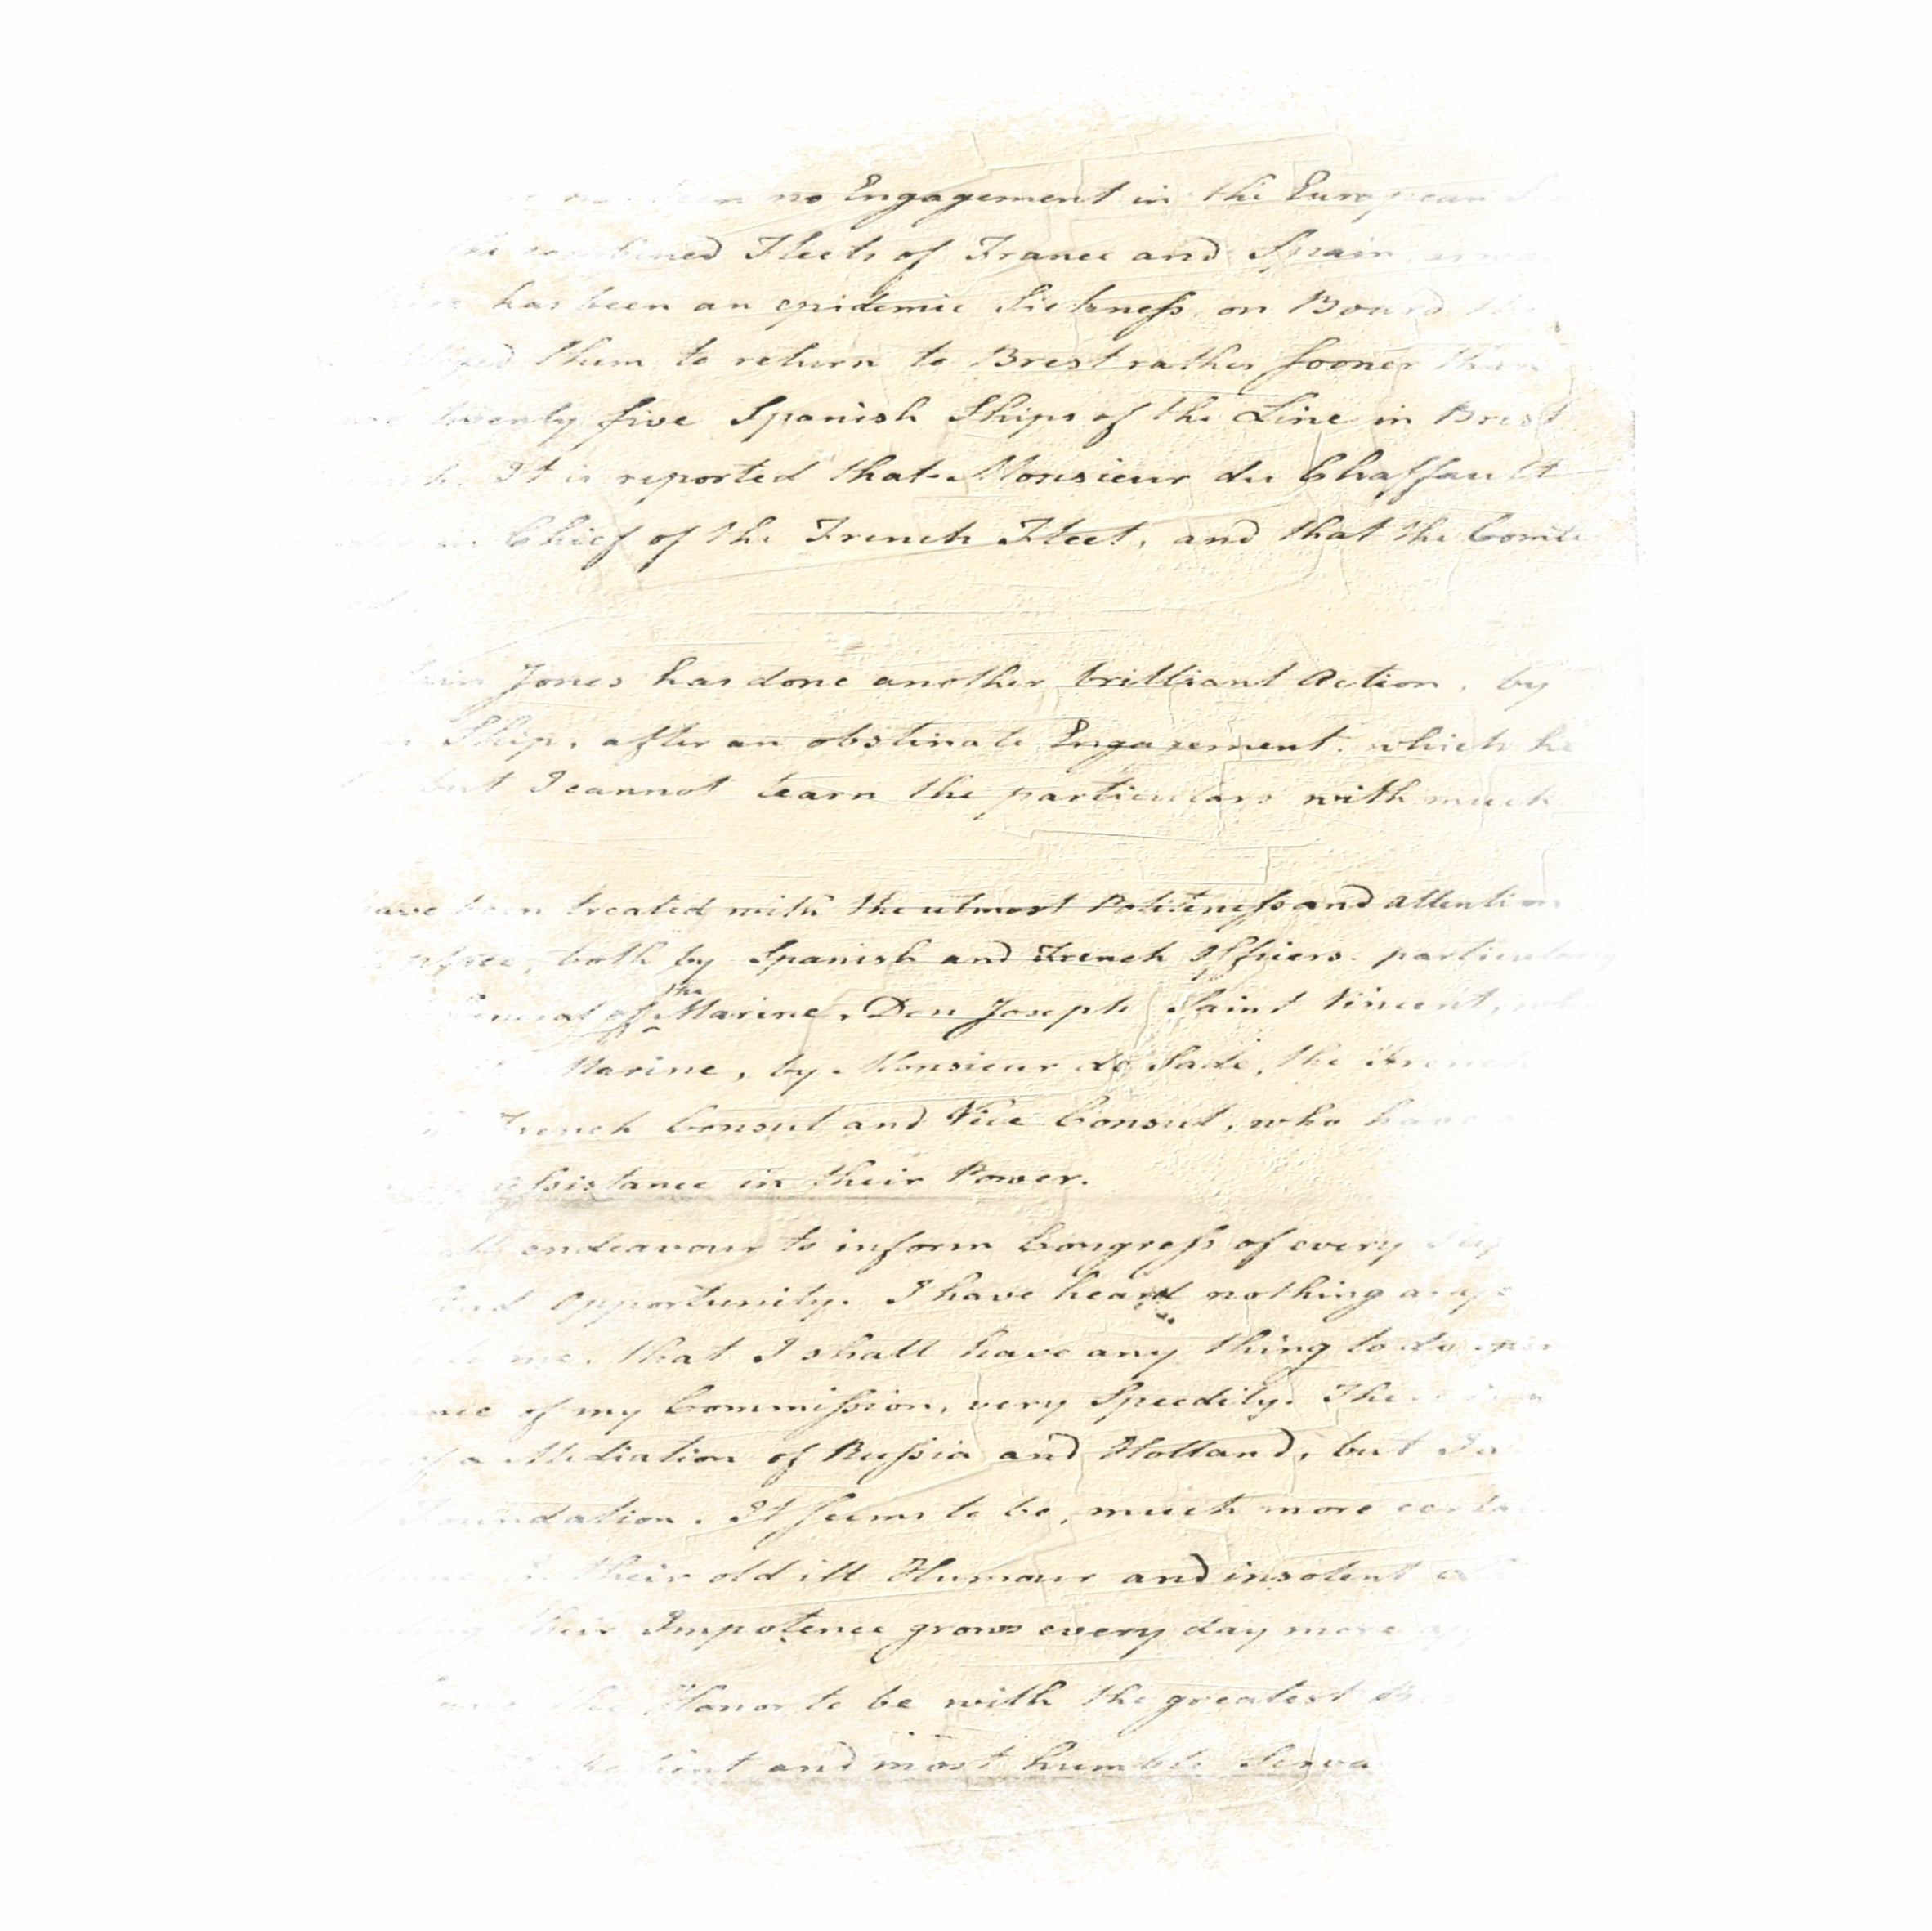 no Engagement in the European
combined Fleets of France and Spain
has been an epidemic Sickneſs, on Board the
them to return to Brest rather ſooner than
twenty five Spanish Ships of the Line in Brest
It is reported that Monsieur du Chaffault
in Chief of the French Fleet, and that the Comte
Jones has done another brilliant Action, by
Ship, after an obstinate Engagement, which he
but I cannot learn the particulars with much
have been treated with the utmost Politeneſs and attention
both by Spanish and French Officers, particularly
General of the Marine, Don Joseph Saint Vincent,
Marine, by Monsieur de Sade, the French
French Consul and Vice Consul, who have
aſsistance in their Power.
endeavour to inform Congreſs of every
Opportunity. I have heard nothing
me, that I shall have any thing to do
of my Commiſsion, very Speedily.
of a Mediation of Ruſsia and Holland, but I
Foundation. It ſeems to be, much more
their old ill Humour and insolent
their Impotence grows every day more
the Honor to be with the greatest
and most humble Serva